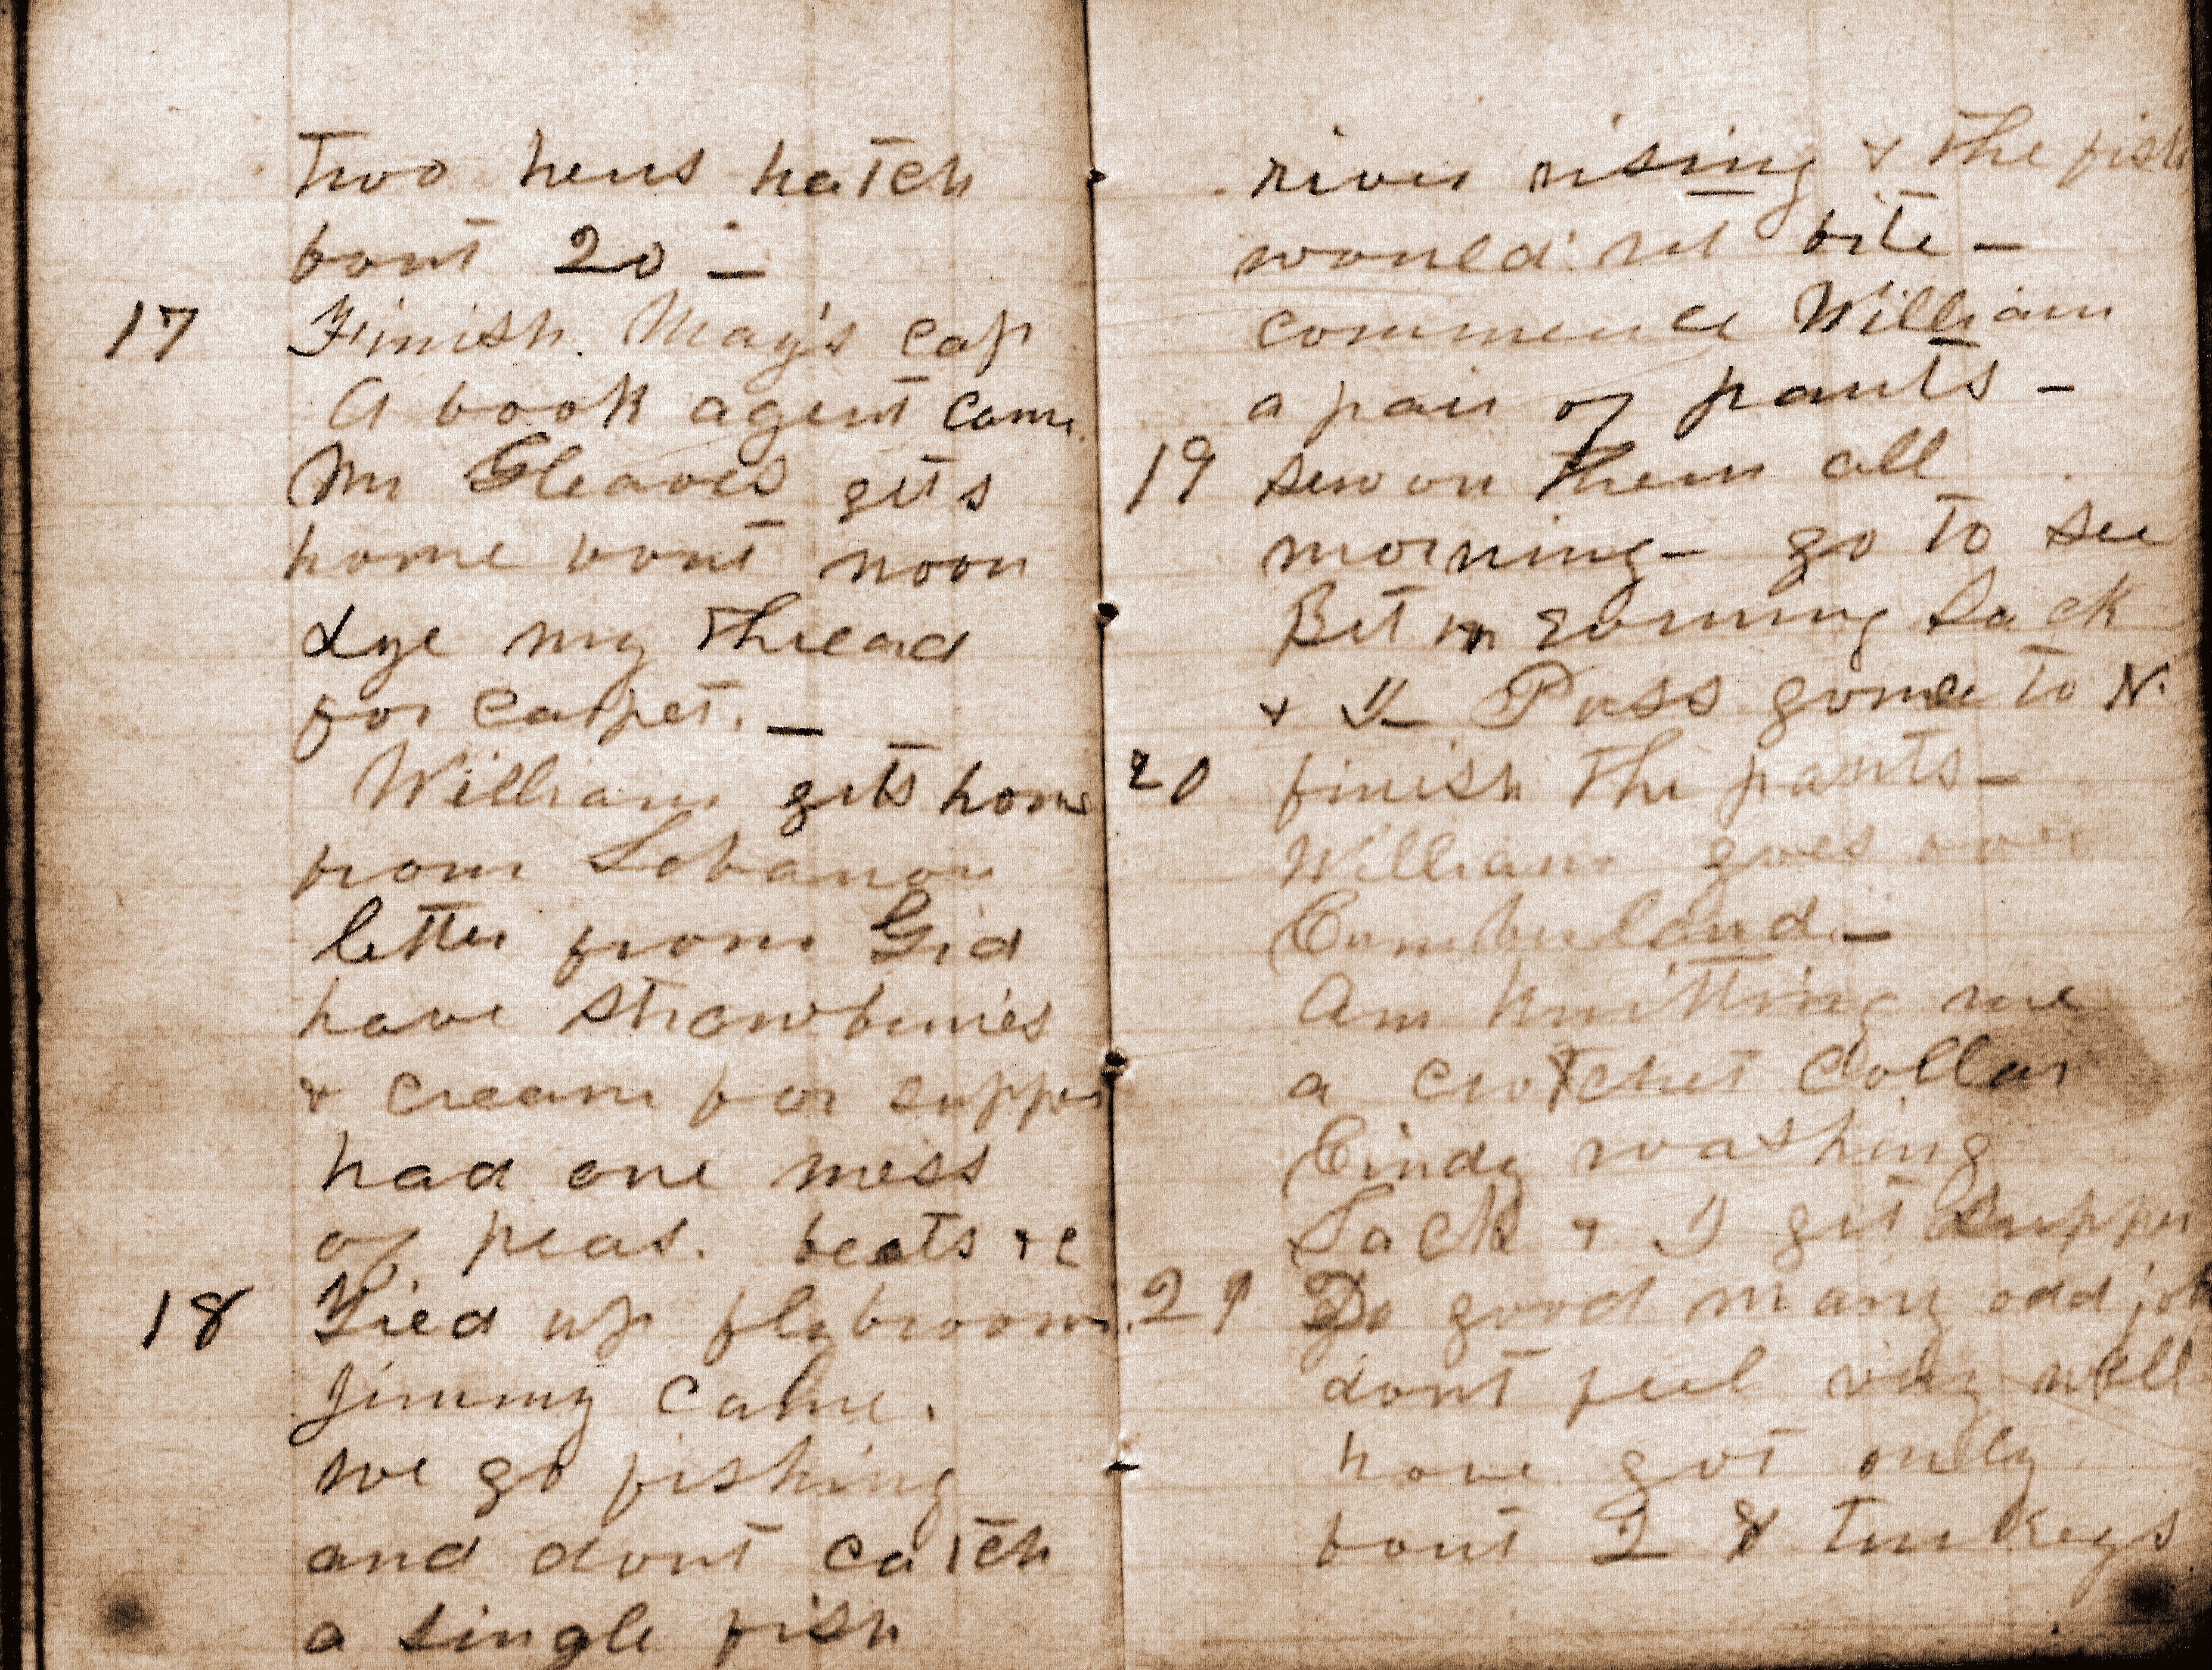 Two hens hatch
bout 20 —
17 Finish May's cap
A book agent came.
Mr Gleaves gets
home bout noon
dye my thread
for carpet. —
William gets home
from Lebanon
letter from Gid
have strawberries
& cream for supper
had one mess
of peas. beets &c
18 Tied up fly broom
Jimmy came.
we go fishing
and dont catch
a single fish
river rising & the fish
would nt bite —
commence William
a pair of pants —
19 sew on them all
morning — go to see
Bet in evening Jack
& Puss gone to N.
20 finish the pants —
William goes over
Cumberland —
Am knitting me
a crotchet collar
Cindy washing
Jack & I get supper
21 Do good many odd jobs
dont feel very well
have got only
bout 28 turkeys